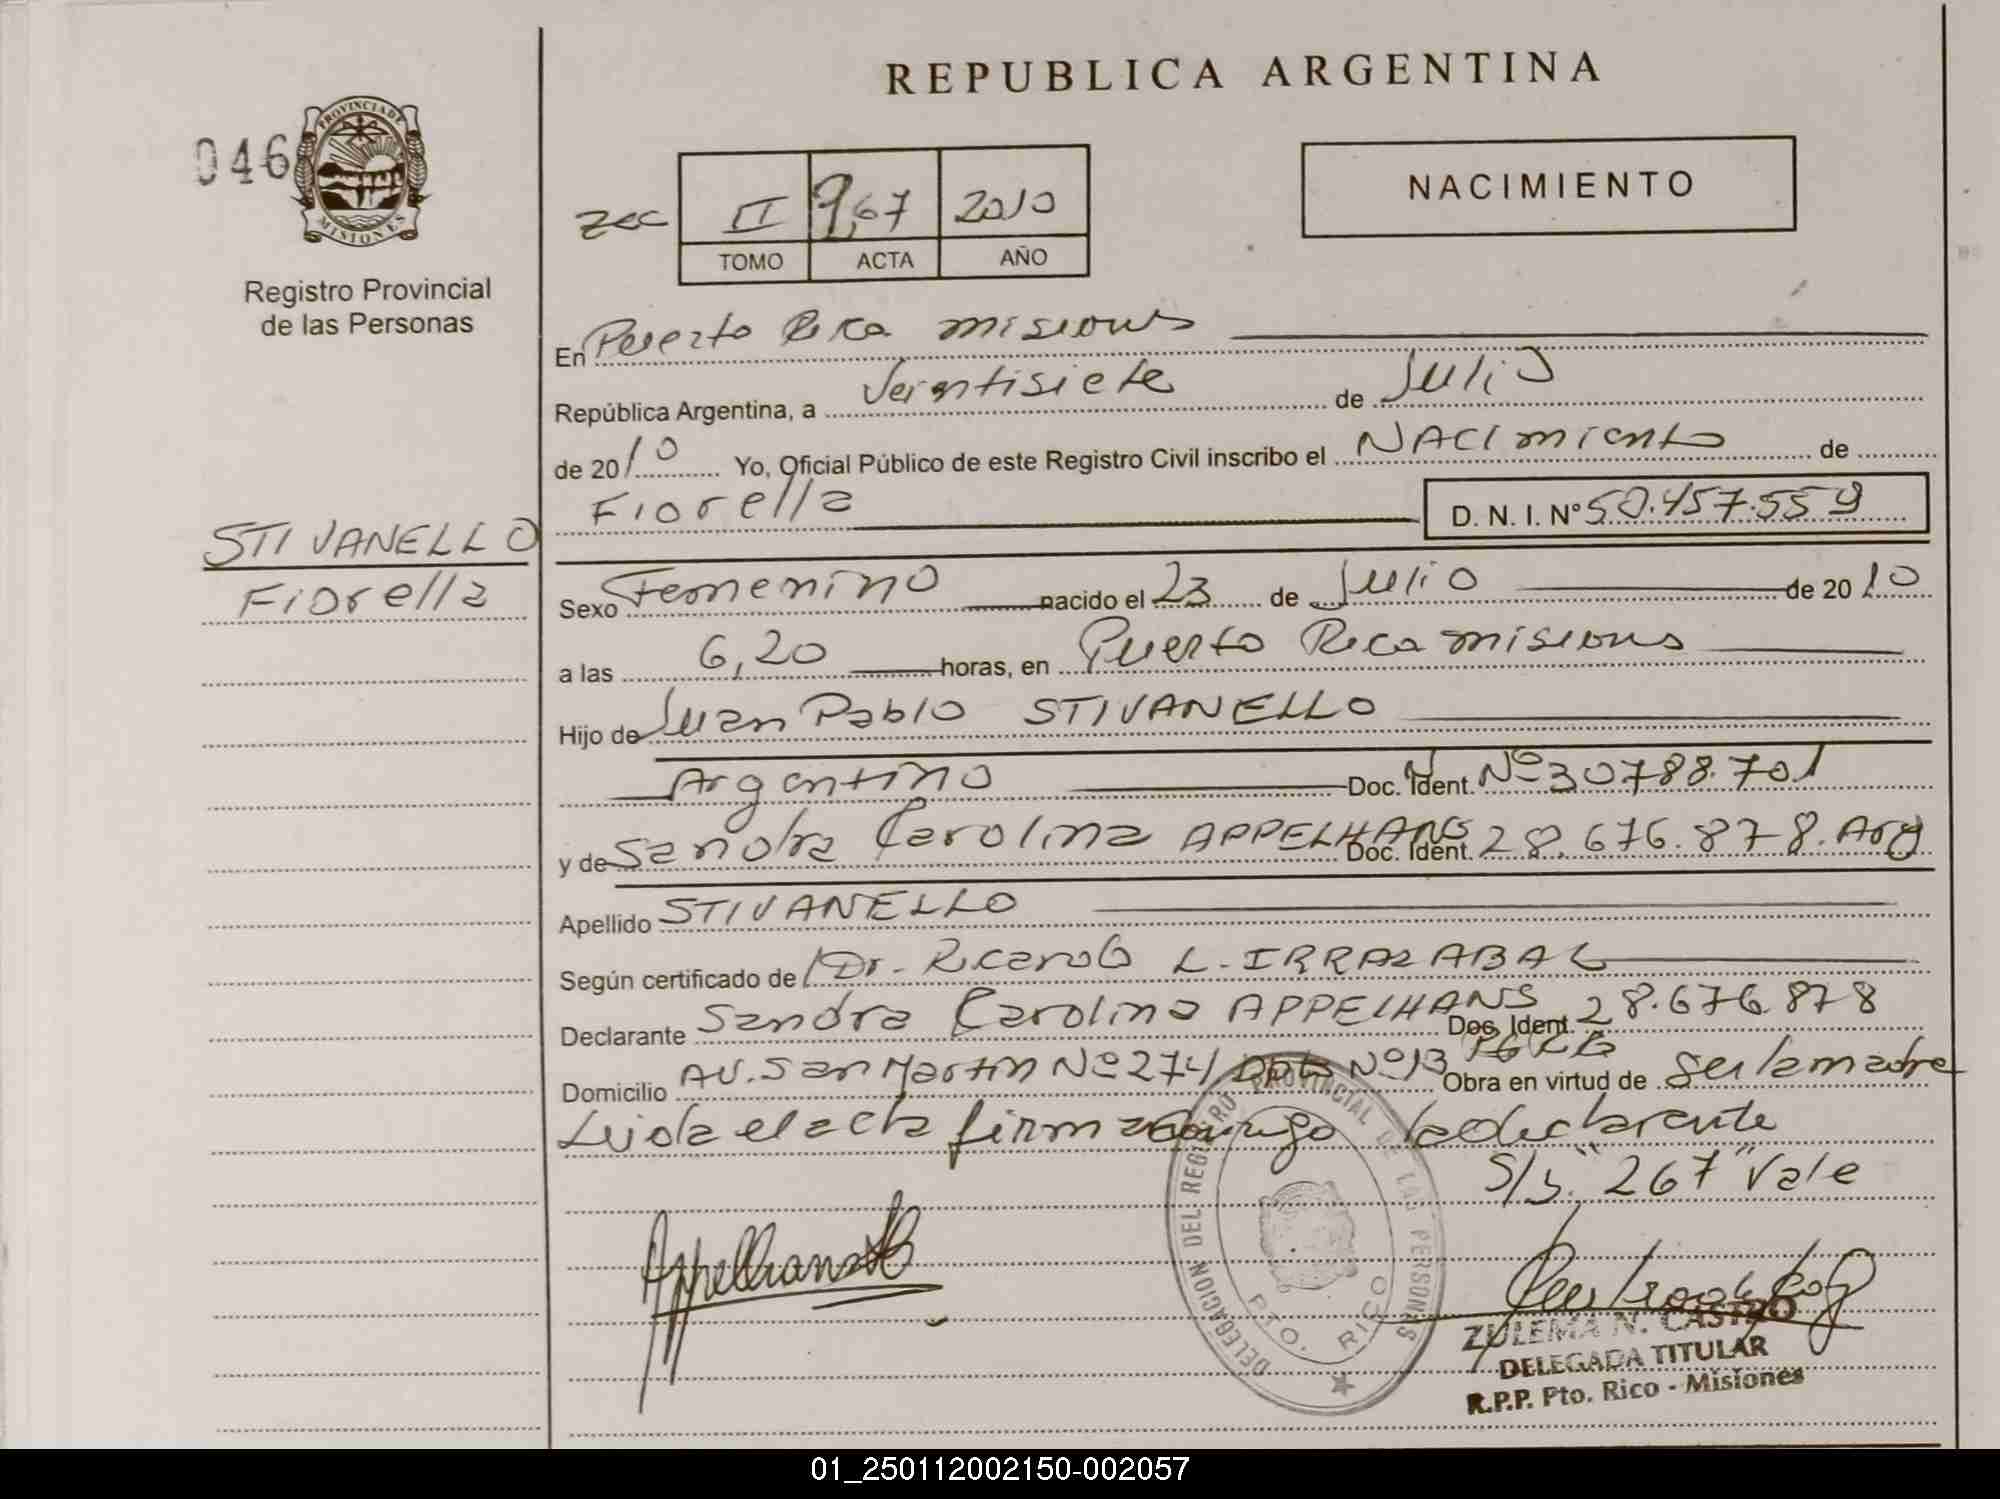 REPUBLICA ARGENTINA
046
PROVINCIA DE
MISIONES
Registro Provincial
de las Personas
NACIMIENTO
II 267 2010
TOMO ACTA AÑO
En Puerto Rico misiones
República Argentina, a Veintisiete de Julio
de 2010 Yo, Oficial Público de este Registro Civil inscribo el NACImiento de
Fiorella D. N. I. Nº 50.457.559
STIVANELLO
Fiorella
Sexo Femenino nacido el 23 de Julio de 2010
a las 6,20 horas, en Puerto Rico misiones
Hijo de Juan Pablo STIVANELLO
Argentino Doc. Ident. Nº 30788.701
y de Sandra Carolina APPELHANS Doc. Ident. 28.676.878. Arg
Apellido STIVANELLO
Según certificado de Dr. Ricardo L. IRRAZABAL
Declarante Sandra Carolina APPELHANS Doc. Ident. 28.676.878
Domicilio AV. San Martin Nº 274 Dpto Nº 13 Obra en virtud de Ser la madre
Leida el acta firma conmigo la declarante
S/b. "267" Vale
Appelhans
DELEGACION DEL REGISTRO PROVINCIAL DE LAS PERSONAS
PTO. RICO
ZULEMA N. CASTRO
DELEGADA TITULAR
R.P.P. Pto. Rico - Misiones
01_250112002150-002057